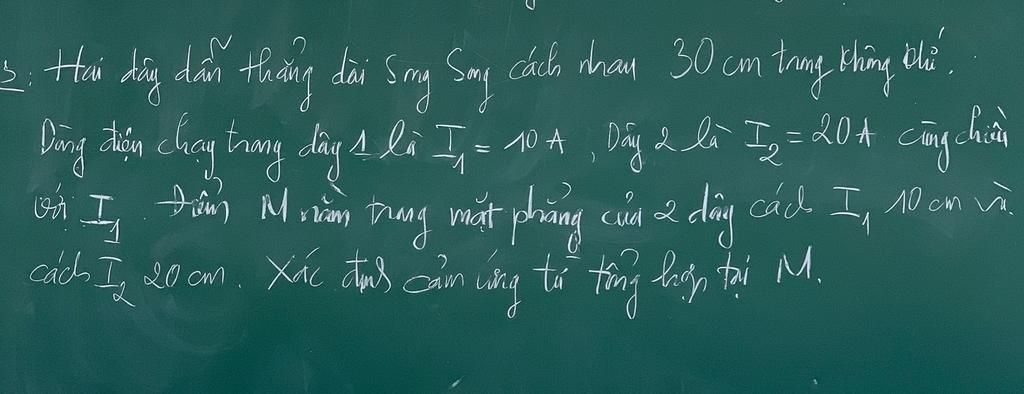 3: Hai dây dẫn thẳng dài song song cách nhau 30 cm trong không khí.
Dòng điện chạy trong dây 1 là I₁ = 10 A, Dây 2 là I₂ = 20 A cùng chiều
với I₁. Điểm M nằm trong mặt phẳng của 2 dây cách I₁ 10 cm và
cách I₂ 20 cm. Xác định cảm ứng từ tổng hợp tại M.